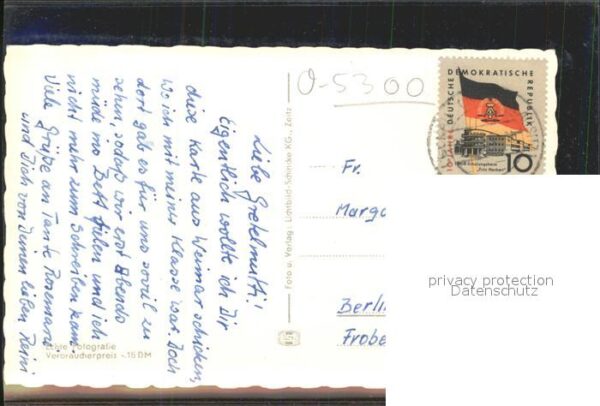 0-5300
Liebe Gretelmutti!
Eigentlich wollte ich Dir
diese Karte aus Weimar schicken,
wo ich mit meiner Klasse war. Doch
dort gab es für uns soviel zu
sehen, sodaß wir erst Abends
müde ins Bett fielen und ich
nicht mehr zum Schreiben kam.
Viele Grüße an Tante Rosemarie
und Dich von Deinem lieben Heini
Echte Fotografie
Verbraucherpreis -.15 DM
Foto u. Verlag: Lichtbild-Schincke KG., Zeitz
Fr.
Marga
Berlin
Frobe
10 JAHRE DEUTSCHE DEMOKRATISCHE REPUBLIK
"Fritz Heckert"
10
privacy protection
Datenschutz